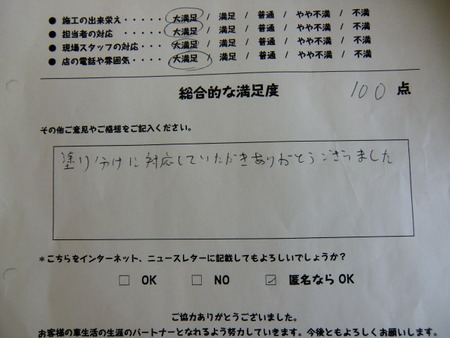 ● 施工の出来栄え・・・・ 大満足 / 満足 / 普通 / やや不満 / 不満
● 担当者の対応・・・・・ 大満足 / 満足 / 普通 / やや不満 / 不満
● 現場スタッフの対応・・ 大満足 / 満足 / 普通 / やや不満 / 不満
● 店の電話や雰囲気・・・ 大満足 / 満足 / 普通 / やや不満 / 不満
総合的な満足度 100 点
その他ご意見やご感想をご記入ください。
塗り分けに対応していただきありがとうございました
*こちらをインターネット、ニュースレターに記載してもよろしいでしょうか?
□ OK □ NO ☑ 匿名なら OK
ご協力ありがとうございました。
お客様の車生活の生涯のパートナーとなれるよう努力していきます。今後ともよろしくお願いします。